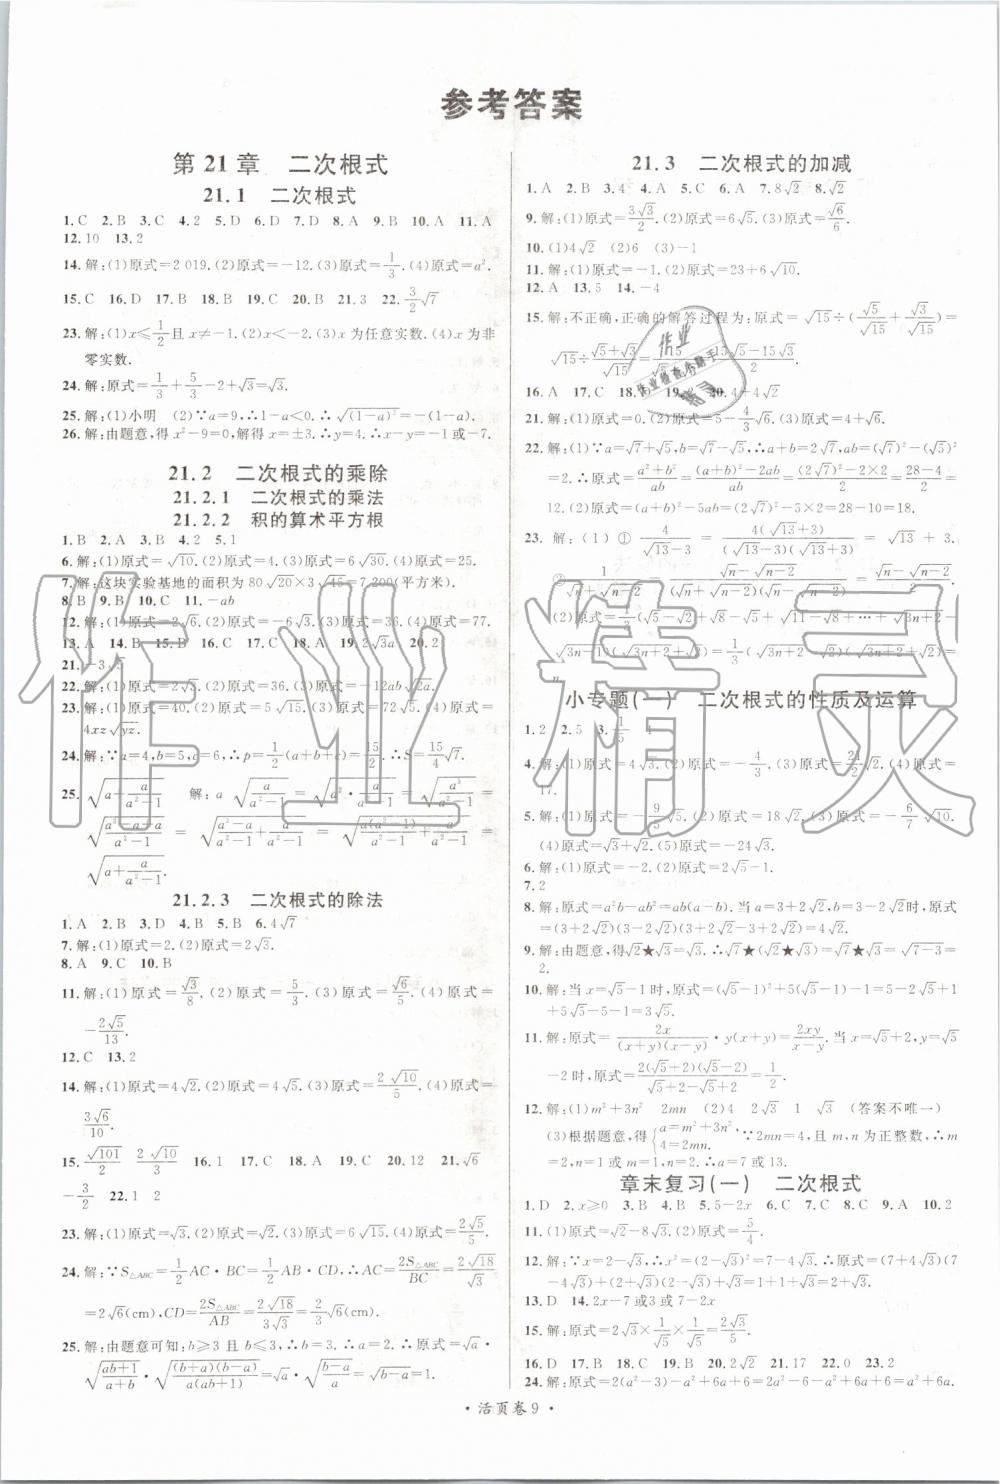 参考答案
第21章 二次根式
21.1 二次根式
1.C 2.B 3.C 4.2 5.D 6.D 7.D 8.A 9.B 10.A 11.A
12.10 13.2
14.解:(1)原式=2 019.(2)原式=-12.(3)原式=1/3.(4)原式=a².
15.C 16.D 17.B 18.B 19.C 20.B 21.3 22.3/2√7
23.解:(1)x≤1/2且x≠-1.(2)x<-2.(3)x为任意实数.(4)x为非
零实数.
24.解:原式=1/3+5/3-2=0.
25.解:(1)小明 (2)∵a=9,∴1-a<0.∴√(1-a)²=-(1-a).
26.解:由题意,得x²-9=0,解得x=±3.∴y=4.∴x-y=-1或-7.
21.2 二次根式的乘除
21.2.1 二次根式的乘法
21.2.2 积的算术平方根
1.B 2.A 3.B 4.2 5.1
6.解:(1)原式=√10.(2)原式=4.(3)原式=6√30.(4)原式=25.
7.解:这块实验基地的面积为80√20×3√45=7 200(平方米).
8.B 9.B 10.C 11.-ab
12.解:(1)原式=2√6.(2)原式=-6√3.(3)原式=12.
13.A 14.B 15.B 16.B 17.C 18.A 19.2√3a 20.2
21.-3√5
22.解:(1)原式=2√3.(2)原式=36.(3)原式=-12ab√2a.
23.解:(1)原式=40.(2)原式=5√15.(3)原式=72√5.(4)原式=
4xz√yz.
24.解:∵a=4,b=5,c=6,∴p=1/2(a+b+c)=15/2.∴S=15/4√7.
25.√(a+a/(a²-1)) 解:a√(a/(a²-1))=√(a²·a/(a²-1))=√(a³/(a²-1))=
√((a³-a+a)/(a²-1))=√((a³-a)/(a²-1)+a/(a²-1))=√(a(a²-1)/(a²-1)+a/(a²-1))=
√(a+a/(a²-1))
21.2.3 二次根式的除法
1.A 2.B 3.D 4.B 5.B 6.4√7
7.解:(1)原式=2.(2)原式=2√3.
8.A 9.C 10.B
11.解:(1)原式=√3/8.(2)原式=5/3.(3)原式=√6/5.(4)原式=
-2√5/13.
12.C 13.2
14.解:(1)原式=4√2.(2)原式=4√5.(3)原式=2√10/5.(4)原式=
3√6/10.
15.√101/2 2√10/5 16.1 17.C 18.A 19.C 20.12 21.√6
-3/2 22.1 2
23.解:(1)原式=√3.(2)原式=√2.(3)原式=6√15.(4)原式=2√5/5.
24.解:∵S△ABC=1/2AC·BC=1/2AB·CD,∴AC=2S△ABC/BC=2√18/√3
=2√6(cm),CD=2S△ABC/AB=2√18/3√3=2/3√6(cm).
25.解:由题意可知:b≥3且b≤3,∴b=3.∴a=2.∴原式=√a·
√((ab+1)/(a+b))·√((b+a)(b-a)/(a(ab+1)))=√a·√((b-a)/a)=√(b-a)=1.
21.3 二次根式的加减
1.A 2.B 3.4 4.A 5.C 6.A 7.8√2 8.√2
9.解:(1)原式=3√3/2.(2)原式=6√5.(3)原式=√6/6.
10.(1)4√2 (2)6 (3)-1
11.解:(1)原式=-1.(2)原式=23+6√10.
12.A 13.5 14.-4
15.解:不正确,正确的解答过程为:原式=√15÷(√5/√15+√3/√15)
=√15÷(√5+√3)/√15
16.A 17.C 20.4+4√2
21.解:(1)原式=0.(2)原式=5-4/3√6.
22.解:(1)∵a=√7+√5,b=√7-√5,∴a+b=2√7,ab=(√7)²-(√5)²
=2.∴原式=(a²+b²)/ab=((a+b)²-2ab)/ab=((2√7)²-2×2)/2=(28-4)/2=
12.(2)原式=(a+b)²-5ab=(2√7)²-5×2=28-10=18.
23.解:(1)①4/(√13-3)=4(√13+3)/((√13-3)(√13+3))=√13+3.
小专题(一) 二次根式的性质及运算
1.2 2.5 3.1/5 4
4.解:(1)原式=4√3.(2)原式=-4/3.
17.
5.解:(1)原式=-9/5√3.(2)原式=18√2.(3)原式=-6/7√10.
(4)原式=-24√5.
6.解:(1)原式=-2√3.(2)原式=2√5-1.(3)原式=4√3.
7.2
8.解:原式=a²b-ab²=ab(a-b).当a=3+2√2,b=3-2√2时,原式=
(3+2√2)(3-2√2)(3+2√2-3+2√2)=4√2.
9.解:由题意,得√2★√3=√3.∴√7★(√2★√3)=√7★√3=√(7-3)=
2.
10.解:当x=√5-1时,原式=(√5-1)²+5(√5-1)-6=5-2√5+1
+5√5-5-6
11.解:原式=2x/((x+y)(x-y))·y(x+y)=2xy/(x-y).当x=√5+2,y=√5
-2时,原式=2(√5+2)(√5-2)/(√5+2-√5+2)=1/2.
12.解:(1)m²+3n² 2mn (2)4 2√3 1 √3 (答案不唯一)
(3)根据题意,得{a=m²+3n², 4=2mn. ∵2mn=4,且m,n为正整数,∴m
=2,n=1或m=1,n=2.∴a=7或13.
章末复习(一) 二次根式
1.D 2.x≥0 3.B 4.B 5.5-2x 6.C 7.C 8.C 9.A 10.2
11.解:(1)原式=√2-8√3.(2)原式=5/4.
12.解:∵x=2-√3,∴x²=(2-√3)²=7-4√3.∴原式=(7+4√3)(7
-4√3)+(2+√3)(2-√3)+√3=1+1+√3=2+√3.
13.D 14.2x-7或3或7-2x
15.解:原式=2√3×1/√5×1/√5=2√3/5.
16.D 17.B 18.C 19.B 20.2√2 21.17 22.0 23.2
24.解:原式=2(a²-3)-a²+6a+6=2a²-6-a²+6a+6=a²+6a.
·活页卷9·
作业精灵